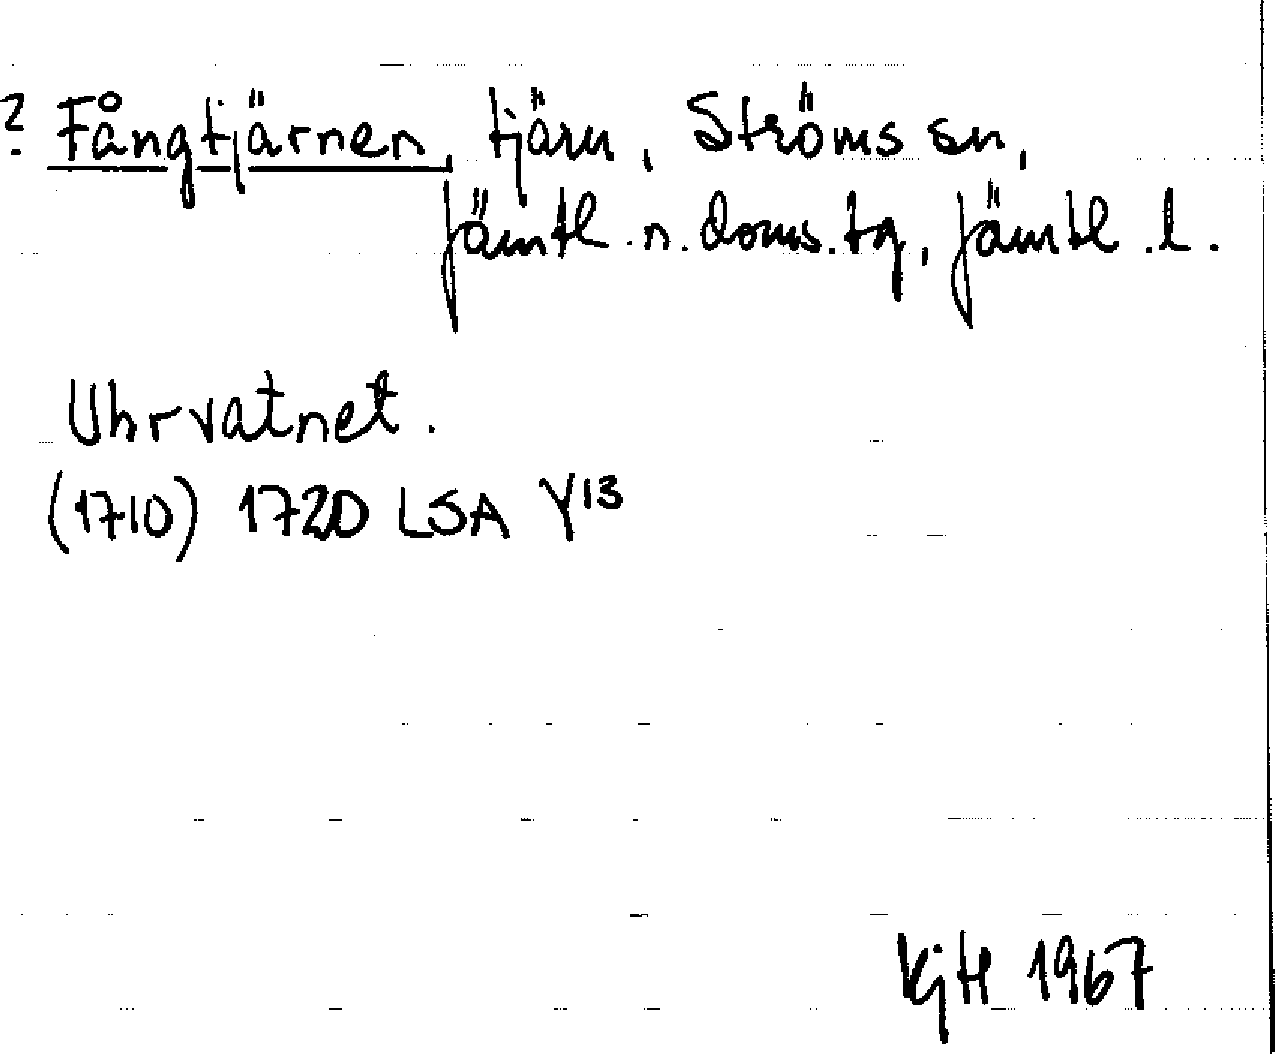 ? Fångtjärnen, tjärn, Ströms sn,
Jämtl. n. doms. tg, Jämtl. l.
Uhrvatnet.
(1710) 1720 LSA Y13
KjH 1967